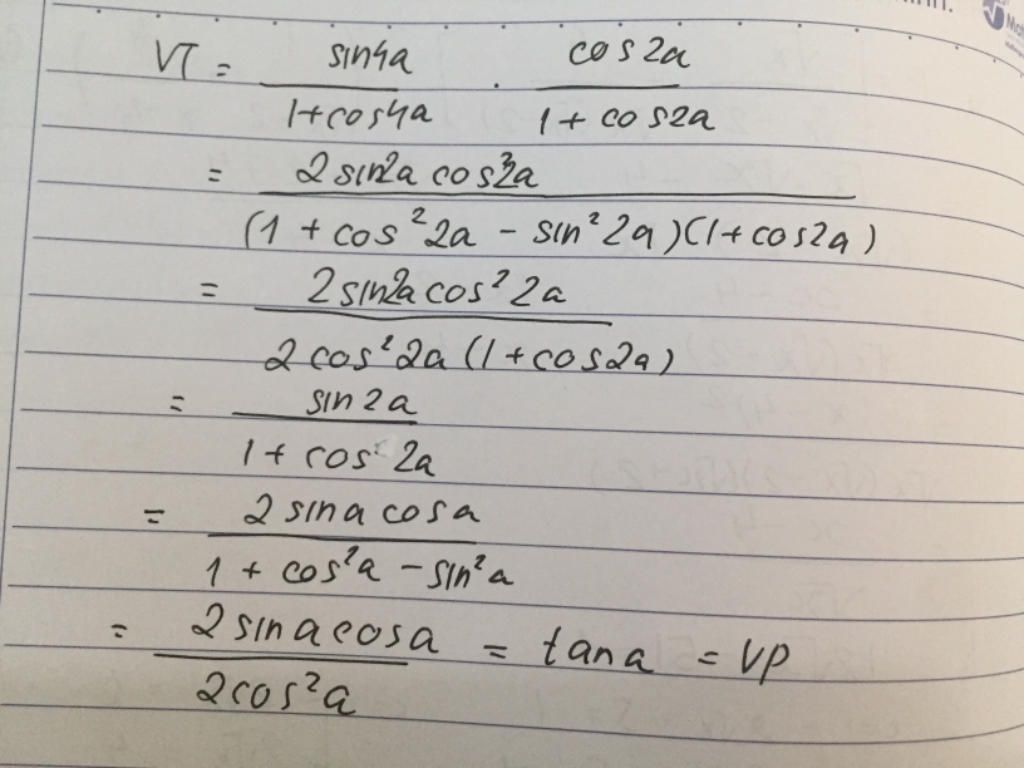 VT = sin4a / 1+cos4a . cos2a / 1 + cos2a
= 2 sin2a cos²2a / (1 + cos²2a - sin²2a)(1+cos2a)
= 2sin2a cos²2a / 2cos²2a (1+cos2a)
= sin2a / 1 + cos 2a
= 2 sina cosa / 1 + cos²a - sin²a
= 2 sina cosa / 2cos²a = tana = VP